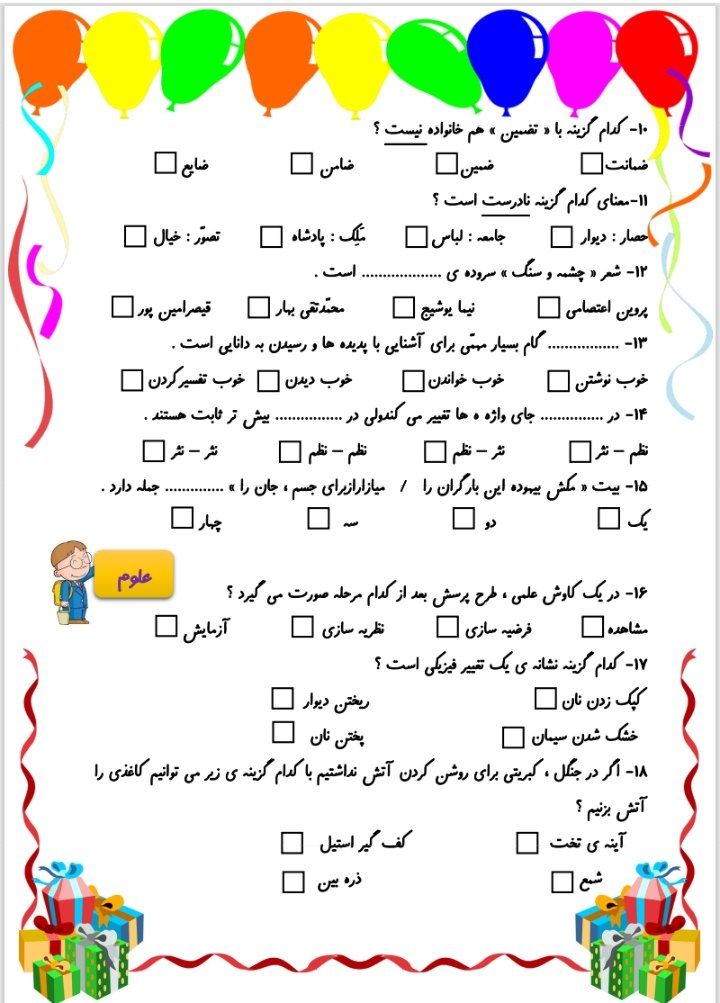 ۱۰- کدام گزینه با « تضمین » هم خانواده نیست ؟
ضمانت ضمین ضامن ضایع
۱۱-معنای کدام گزینه نادرست است ؟
حصار : دیوار جامعه : لباس مَلِک : پادشاه تصوّر : خیال
۱۲- شعر « چشمه و سنگ » سروده ی ................... است .
پروین اعتصامی نیما یوشیج محمّدتقی بهار قیصرامین پور
۱۳- ................. گام بسیار مهمّی برای آشنایی با پدیده ها و رسیدن به دانایی است .
خوب نوشتن خوب خواندن خوب دیدن خوب تفسیرکردن
۱۴- در ............... جای واژه ه ها تغییر می کندولی در ................ بیش تر ثابت هستند .
نظم – نثر نثر – نظم نظم – نظم نثر – نثر
۱۵- بیت « مکش بیهوده این بارگران را / میازارازبرای جسم ، جان را » .............. جمله دارد .
یک دو سه چهار
علوم
۱۶- در یک کاوش علمی ، طرح پرسش بعد از کدام مرحله صورت می گیرد ؟
مشاهده فرضیه سازی نظریه سازی آزمایش
۱۷- کدام گزینه نشانه ی یک تغییر فیزیکی است ؟
کپک زدن نان ریختن دیوار
خشک شدن سیمان پختن نان
۱۸- اگر در جنگل ، کبریتی برای روشن کردن آتش نداشتیم با کدام گزینه ی زیر می توانیم کاغذی را
آتش بزنیم ؟
آینه ی تخت کف گیر استیل
شمع ذره بین